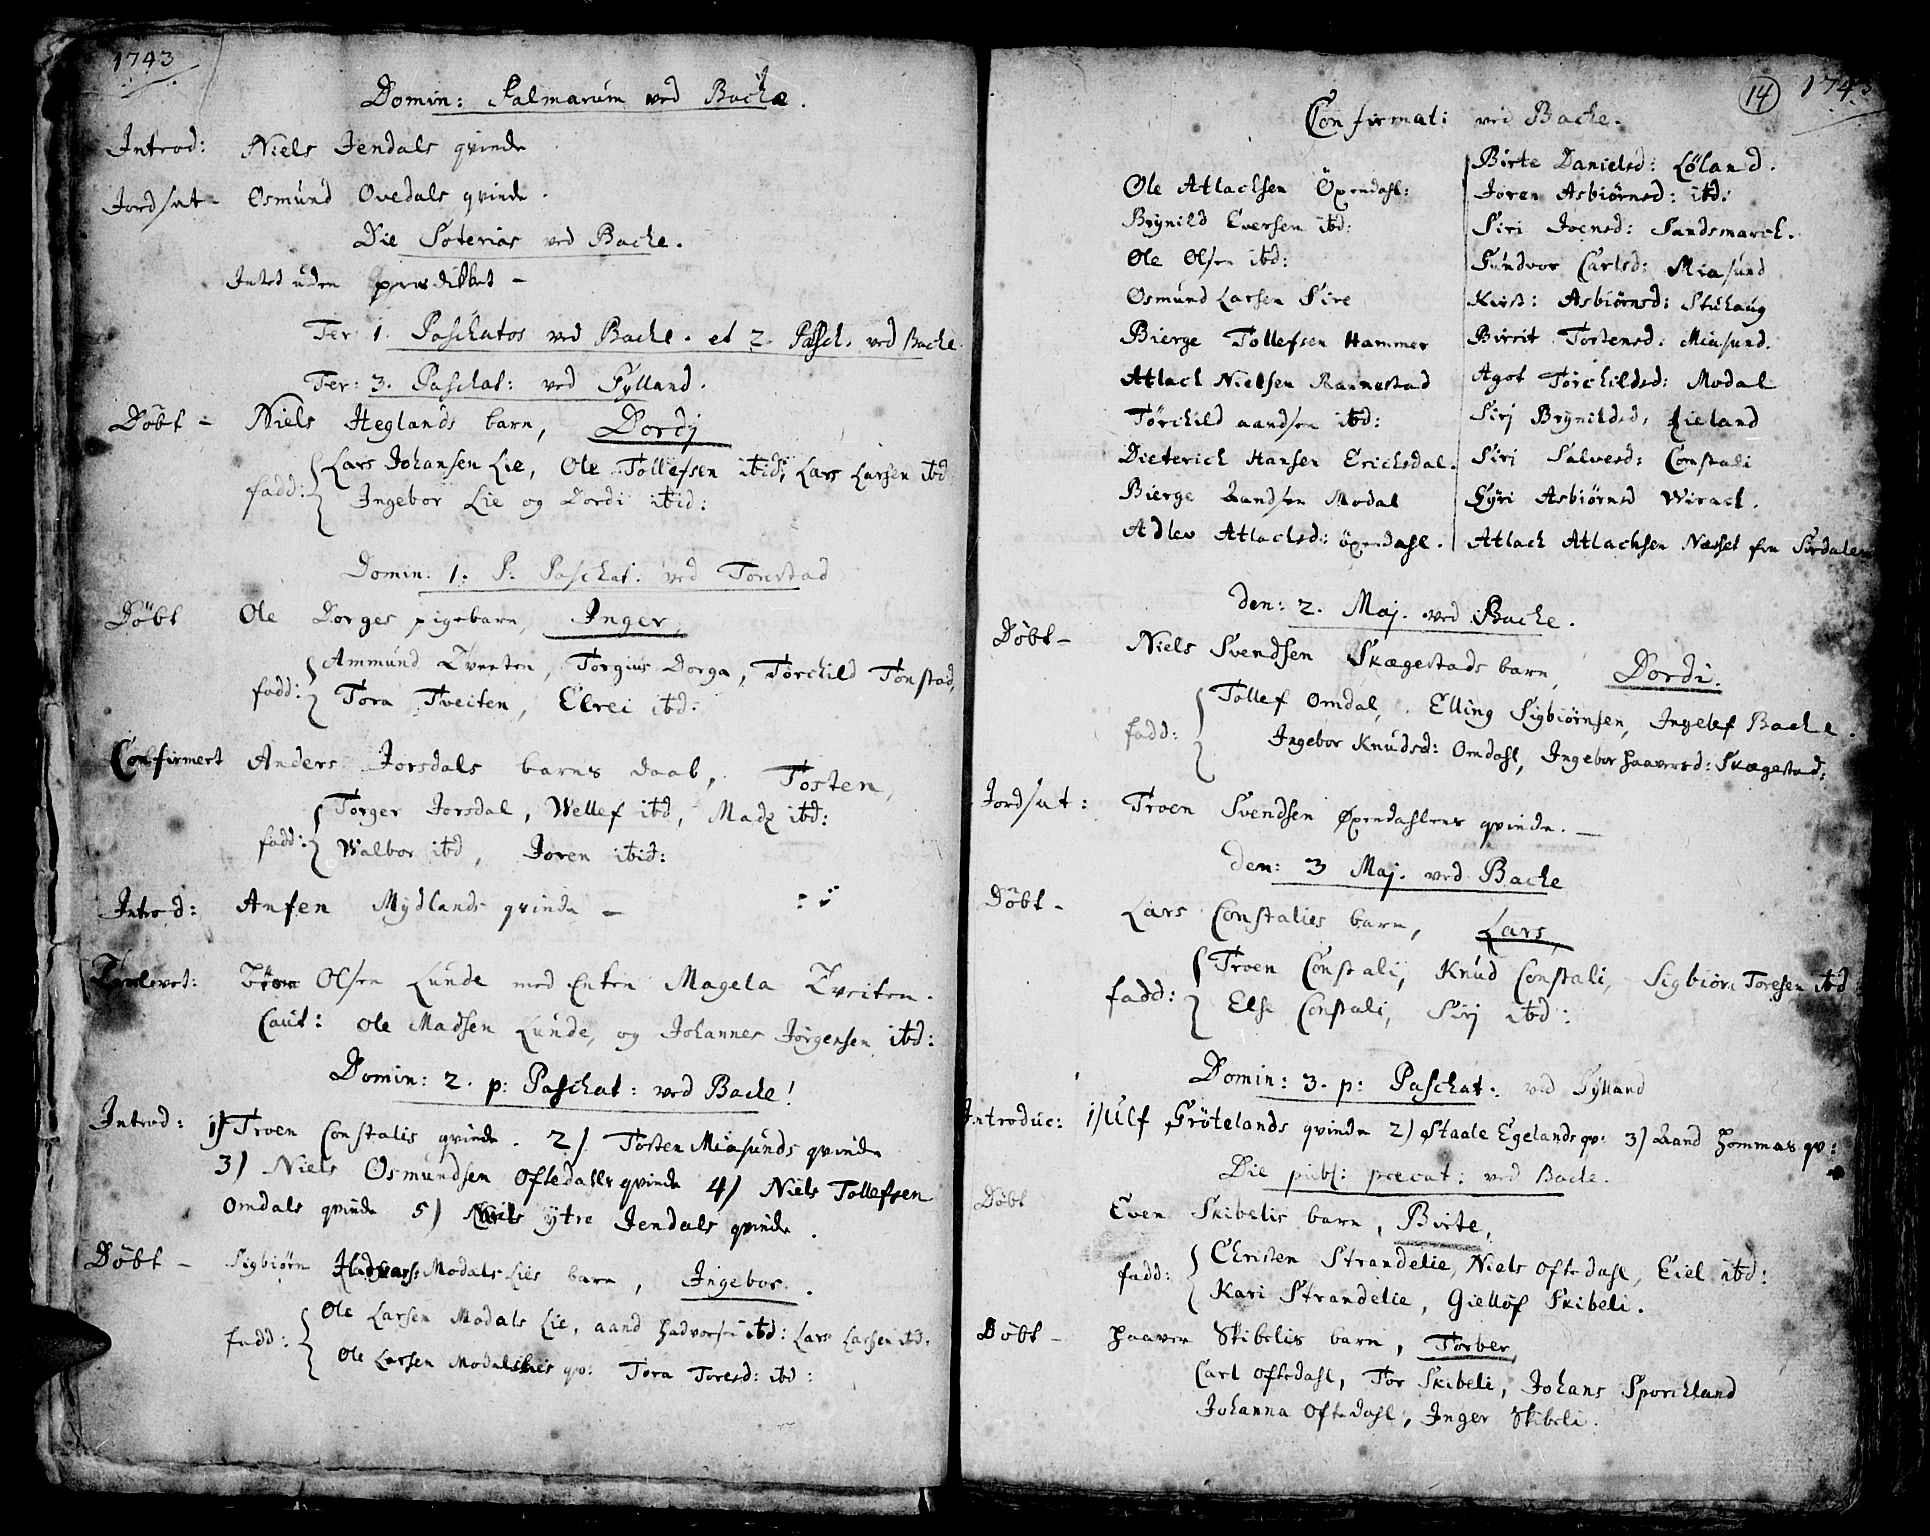 1743
Domin: Palmarum ved Bache.
Introd: Niels Jendals qvinde
Jordsat - Osmund Ovedals qvinde.
Die Soterias ved Bache.
Intet uden prædiket -
Fer 1. Paschatos ved Bache. et 2. Pasch. ved Bache.
Fer: 3. Paschat: ved Fylland.
Døbt - Niels Heglands barn, Dordj
fadd: Lars Johansen Lie, Ole Tollefsen ibid; Lars Larsen ibd
Ingebor Lie og Dordi ibid:
Domin: 1. P: Paschat: ved Tonstad
Døbt Ole Dorges pigebarn, Inger,
fadd: Ammund Tveiten, Torgius Dorga, Torchild Tonstad,
Tora Tveiten, Elrei ibd:
Confirmert Anders Josdals barns daab, Tosten,
fadd: Torger Josdal, Wellef ibd, Madz ibd:
Walbor ibd, Joren ibid:
Introd: Anfen Mydlands qvinde -
Trolovet: Olsen Lunde med Enken Magela Tveiten.
Caut: Ole Madsen Lunde, og Johannes Jörgensen ibd:
Domin: 2. p: Paschat: ved Bache!
Introd: 1) Troen Constalis qvinde. 2) Tosten Miasunds qvinde
3) Niels Osmundsen Oftedals qvinde 4) Niels Tollefsen
Omdals qvinde 5) Niels ytre Jendals qvinde.
Døbt - Sigbiørn Modals Lies barn, Ingebor.
fadd: Ole Larsen Modals Lie, aand Hadvorsen ibd: Lars Larsen ibd:
Ole Larsen Modalslies qv: Tora Toresd: ibd:
14 1743
Confirmati ved Bache.
Ole Atlachsen Öxendahl:
Brynild Eversen ibd:
Ole Olsen ibd:
Osmund Larsen Sire
Bierge Tollefsen Hammer
Atlach Nielsen Rannestad
Törchild aandsen ibd:
Dieterich Hansen Erichsdal.
Bierge Aandsen Modal
Adlev Atlachsd: öxendahl.
Birte Danielsd: Løland.
Joren Asbiörnsd: ibd:
Siri Joensd: Sandsmarch.
Gundvor Carlsd: Miasund
Kirst: Asbiörnsd: Stuhaug
Birrit Tostensd: Miasund.
Agot Törchildsd: Modal
Sirj Brynildsd: Lieland
Siri Salvesd: Constali
Gyri Asbiörnsd Wirack.
Atlach Atlachsen Næsset fra Sirdalen
den: 2. Maj. ved Bache.
Döbt - Niels Svendsen Skægestads barn, Dordi.
fadd: Tollef Omdal, Elling Sigbiörnsen, Ingelef Bache.
Ingebor Knudsd: Omdahl, Ingebor Haaversd: Skægestad:
Jordsat: Troen Svendsen Øxendahlens qvinde. -
den: 3 Maj. ved Bache
Döbt - Lars Constalies barn, Lars,
fadd: Troen Constali, Knud Constali, Sigbiörn Toresen ibd
Else Constali, Sirj ibd:
Domin: 3. p: Paschat: ved Fylland
Introduc: 1) Ulf Frötelands qvinde 2) Staale Egelands qv: 3) Aand Hommas qv:
Die publ: precat: ved Bache.
Döbt Even Skibelis barn, Birte,
fadd: Christen Strandelie, Niels Oftedahl, Eiel ibd:
Kari Strandelie, Giellöf Skibeli.
Döbt - Haaver Skibelis barn, Torber,
Carl Oftedahl, Tor Skibeli, Johans Sporchland
Johanna Oftedahl, Inger Skibeli.